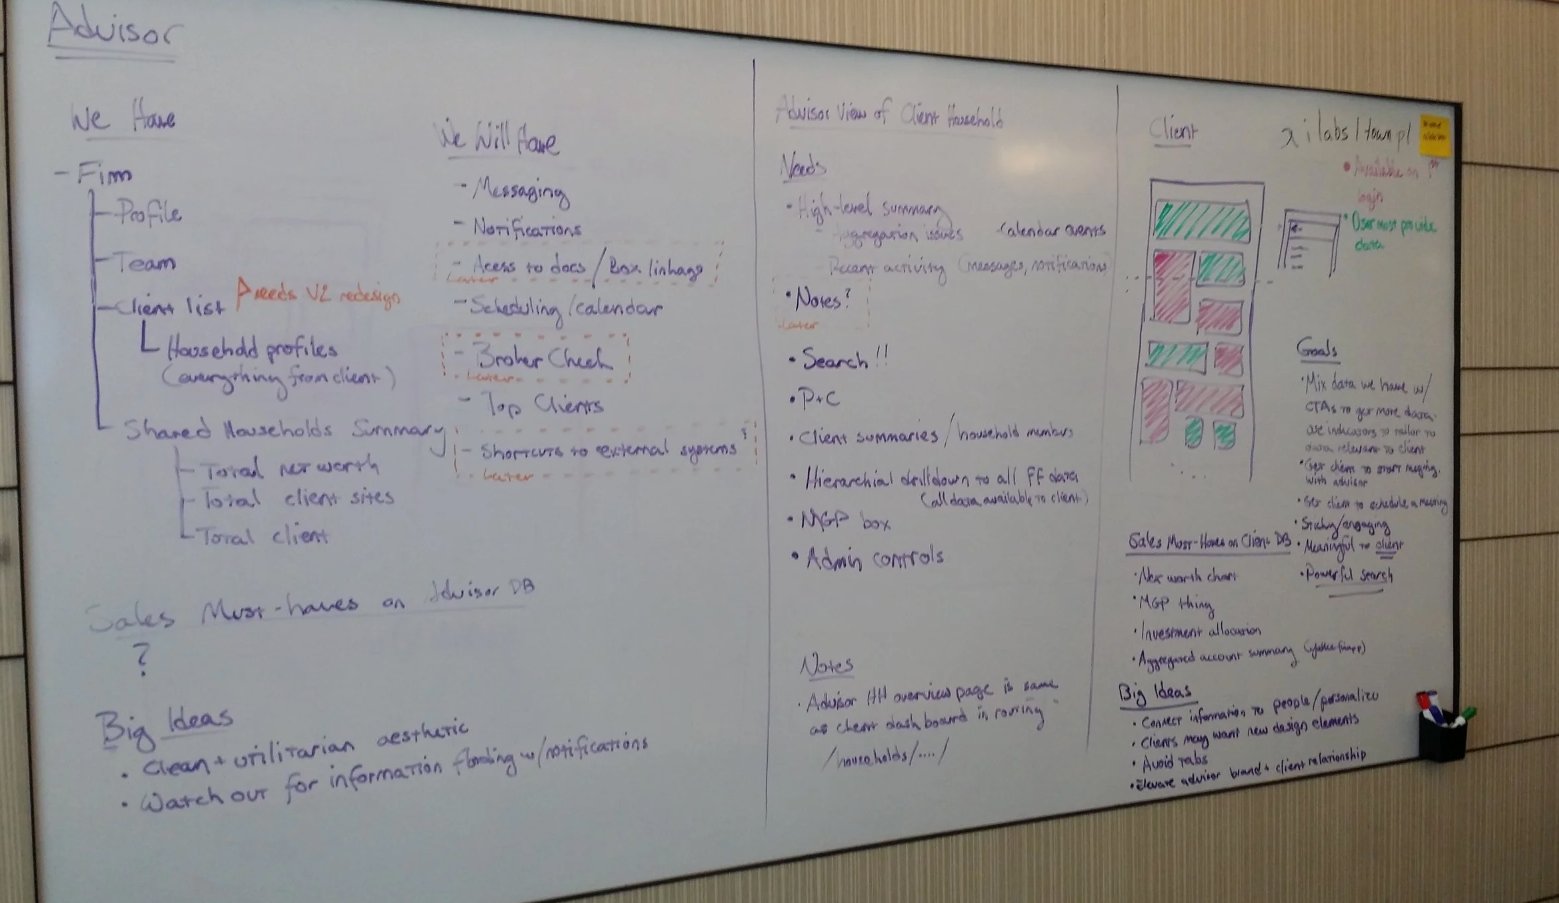 Advisor
We Have
- Firm
- Profile
- Team
- Client list
needs V2 redesign
Household profiles
(everything from client)
Shared Households Summary
- Total net worth
- Total client sites
- Total client
Sales Must-haves on Advisor DB
?
Big Ideas
• Clean + utilitarian aesthetic
• Watch out for information flooding w/notifications
We Will Have
- Messaging
- Notifications
- Acess to docs / Box linkage
Later
- Scheduling/calendar
- Broker Check
Later
- Top Clients
- Shortcuts to external systems?
Later
Advisor View of Client Household
Needs
• High-level summary
- Aggregation issues - Calendar events
Recent activity (messages, notifications)
• Notes?
Later
• Search!!
• P+C
• Client summaries / household members
• Hierarchial drilldown to all FF data
(all data available to client)
• MGP box
• Admin controls
Notes
• Advisor HH overview page is same
as client dashboard in routing
/households/..../
Client
i labs/town p/
• Available on 1st
login
• User must provide
data
Goals
• Mix data we have w/
CTAs to get more data.
use indicators to tailor to
data relevant to client
• Get client to start meeting
with advisor
• Get client to schedule a meeting
• Sticky/engaging
• Meaningful to client
• Powerful search
Sales Must-Haves on Client DB
• Net worth chart
• MGP thing
• Investment allocation
• Aggregated account summary
Big Ideas
• Connect information to people/personalize
• Clients may want new design elements
• Avoid tabs
• Elevate advisor brand + client relationship